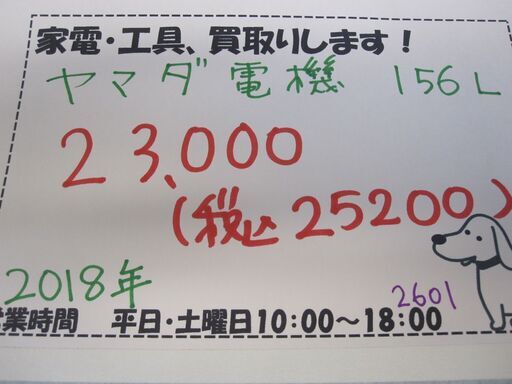 家電・工具、買取りします！
ヤマダ電機 156L
23,000
(税込25200)
2018年
2601
営業時間 平日・土曜日10：00～18：00